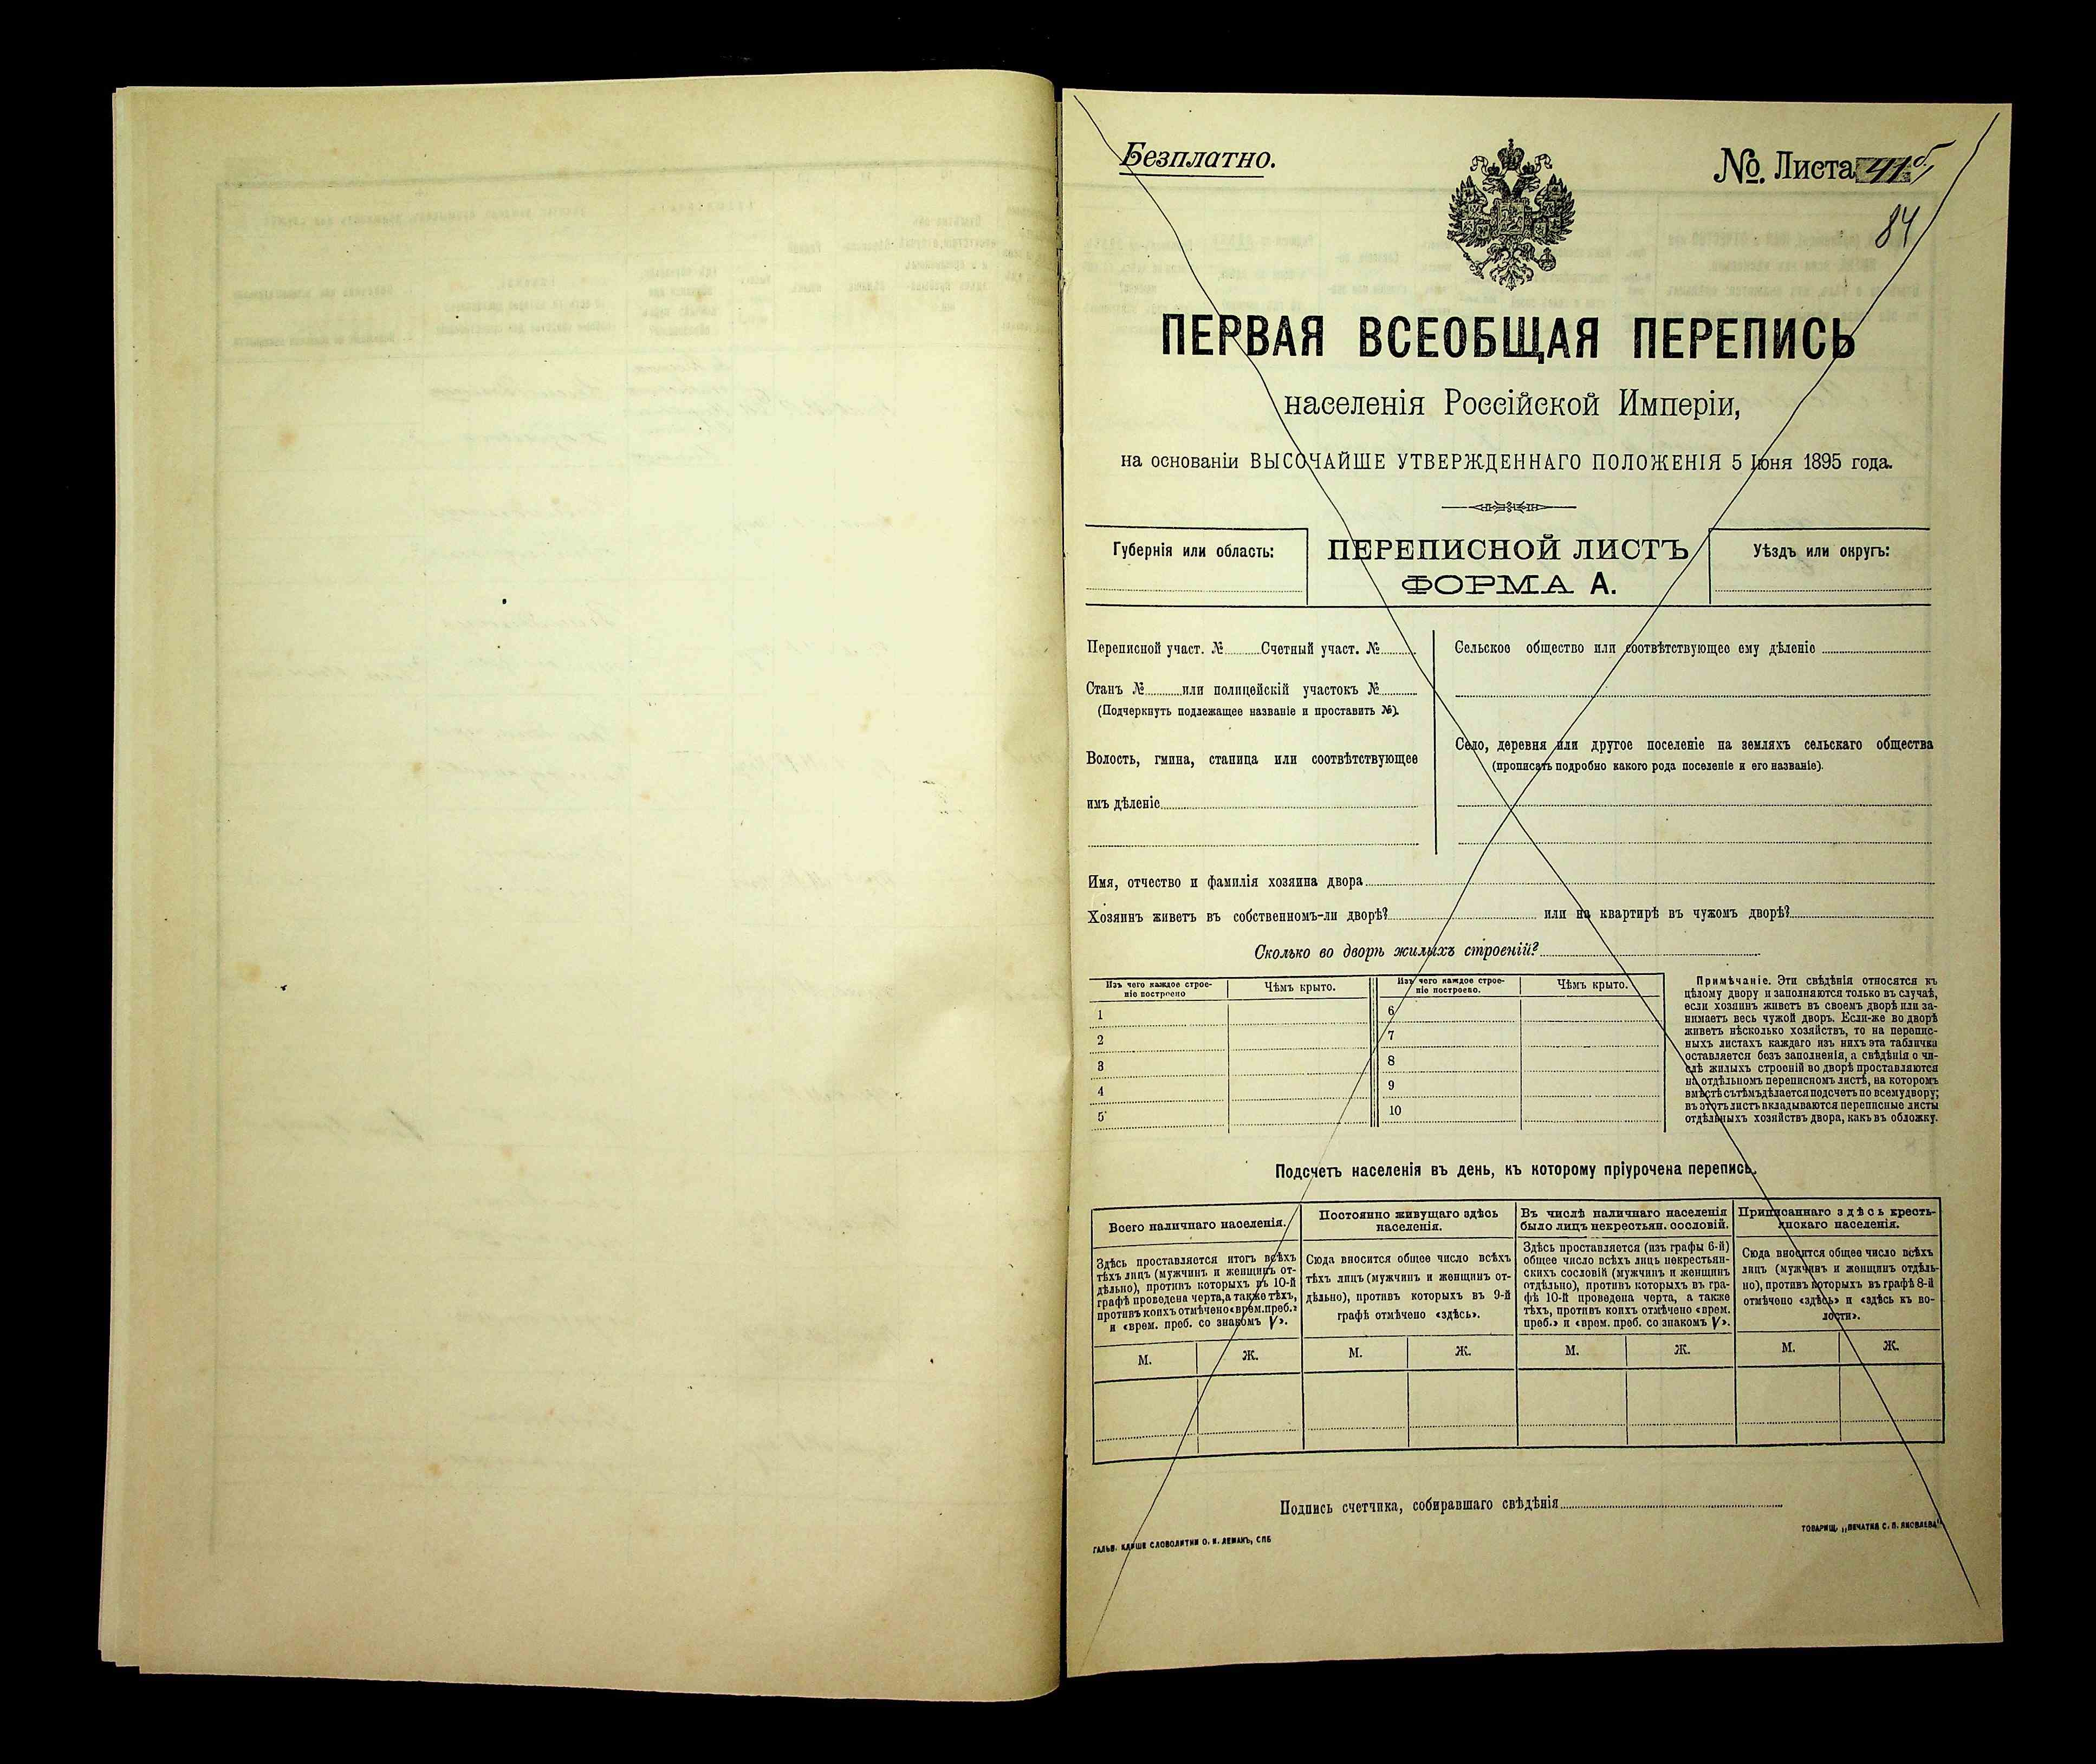 Безплатно.
№. Листа 41б
84
ПЕРВАЯ ВСЕОБЩАЯ ПЕРЕПИСЬ
населенія Россійской Имперіи,
на основаніи ВЫСОЧАЙШЕ УТВЕРЖДЕННАГО ПОЛОЖЕНІЯ 5 Іюня 1895 года.
Губернія или область:
ПЕРЕПИСНОЙ ЛИСТЪ
ФОРМА А.
Уѣздъ или округъ:
Переписной участ. № Счетный участ. №
Станъ № или полицейскій участокъ №
(Подчеркнуть подлежащее названіе и проставить №).
Волость, гмина, станица или соотвѣтствующее
имъ дѣленіе
Сельское общество или соотвѣтствующее ему дѣленіе
Село, деревня или другое поселеніе на земляхъ сельскаго общества
(прописать подробно какого рода поселеніе и его названіе).
Имя, отчество и фамилія хозяина двора
Хозяинъ живетъ въ собственномъ-ли дворѣ? или на квартирѣ въ чужомъ дворѣ?
Сколько во дворѣ жилыхъ строеній?
Изъ чего каждое строе-
ніе построено
Чѣмъ крыто.
1
2
3
4
5
Изъ чего каждое строе-
ніе построено.
Чѣмъ крыто.
6
7
8
9
10
Примѣчаніе. Эти свѣдѣнія относятся къ
цѣлому двору и заполняются только въ случаѣ,
если хозяинъ живетъ въ своемъ дворѣ или за-
нимаетъ весь чужой дворъ. Если-же во дворѣ
живетъ нѣсколько хозяйствъ, то на перепис-
ныхъ листахъ каждаго изъ нихъ эта табличка
оставляется безъ заполненія, а свѣдѣнія о чи-
слѣ жилыхъ строеній во дворѣ проставляются
на отдѣльномъ переписномъ листѣ, на которомъ
вмѣстѣ съ тѣмъ дѣлается подсчетъ по всему двору;
въ этотъ листъ вкладываются переписные листы
отдѣльныхъ хозяйствъ двора, какъ въ обложку.
Подсчетъ населенія въ день, къ которому пріурочена перепись.
Всего наличнаго населенія.
Здѣсь проставляется итогъ всѣхъ
тѣхъ лицъ (мужчинъ и женщинъ от-
дѣльно), противъ которыхъ въ 10-й
графѣ проведена черта, а также тѣхъ,
противъ коихъ отмѣчено «врем. преб.»
и «врем. преб. со знакомъ V».
М. Ж.
Постоянно живущаго здѣсь
населенія.
Сюда вносится общее число всѣхъ
тѣхъ лицъ (мужчинъ и женщинъ от-
дѣльно), противъ которыхъ въ 9-й
графѣ отмѣчено «здѣсь».
М. Ж.
Въ числѣ наличнаго населенія
было лицъ некрестьян. сословій.
Здѣсь проставляется (изъ графы 6-й)
общее число всѣхъ лицъ некрестьян-
скихъ сословій (мужчинъ и женщинъ
отдѣльно), противъ которыхъ въ гра-
фѣ 10-й проведена черта, а также
тѣхъ, противъ коихъ отмѣчено «врем.
преб.» и «врем. преб. со знакомъ V».
М. Ж.
Приписаннаго здѣсь кресть-
янскаго населенія.
Сюда вносится общее число всѣхъ
лицъ (мужчинъ и женщинъ отдѣль-
но), противъ которыхъ въ графѣ 8-й
отмѣчено «здѣсь» и «здѣсь къ во-
лости».
М. Ж.
Подпись счетчика, собиравшаго свѣдѣнія
ГАЛЬВ. КЛИШЕ СЛОВОЛИТНИ О. И. ЛЕМАНЪ, СПБ
ТОВАРИЩ. „ПЕЧАТНЯ С. П. ЯКОВЛЕВА"